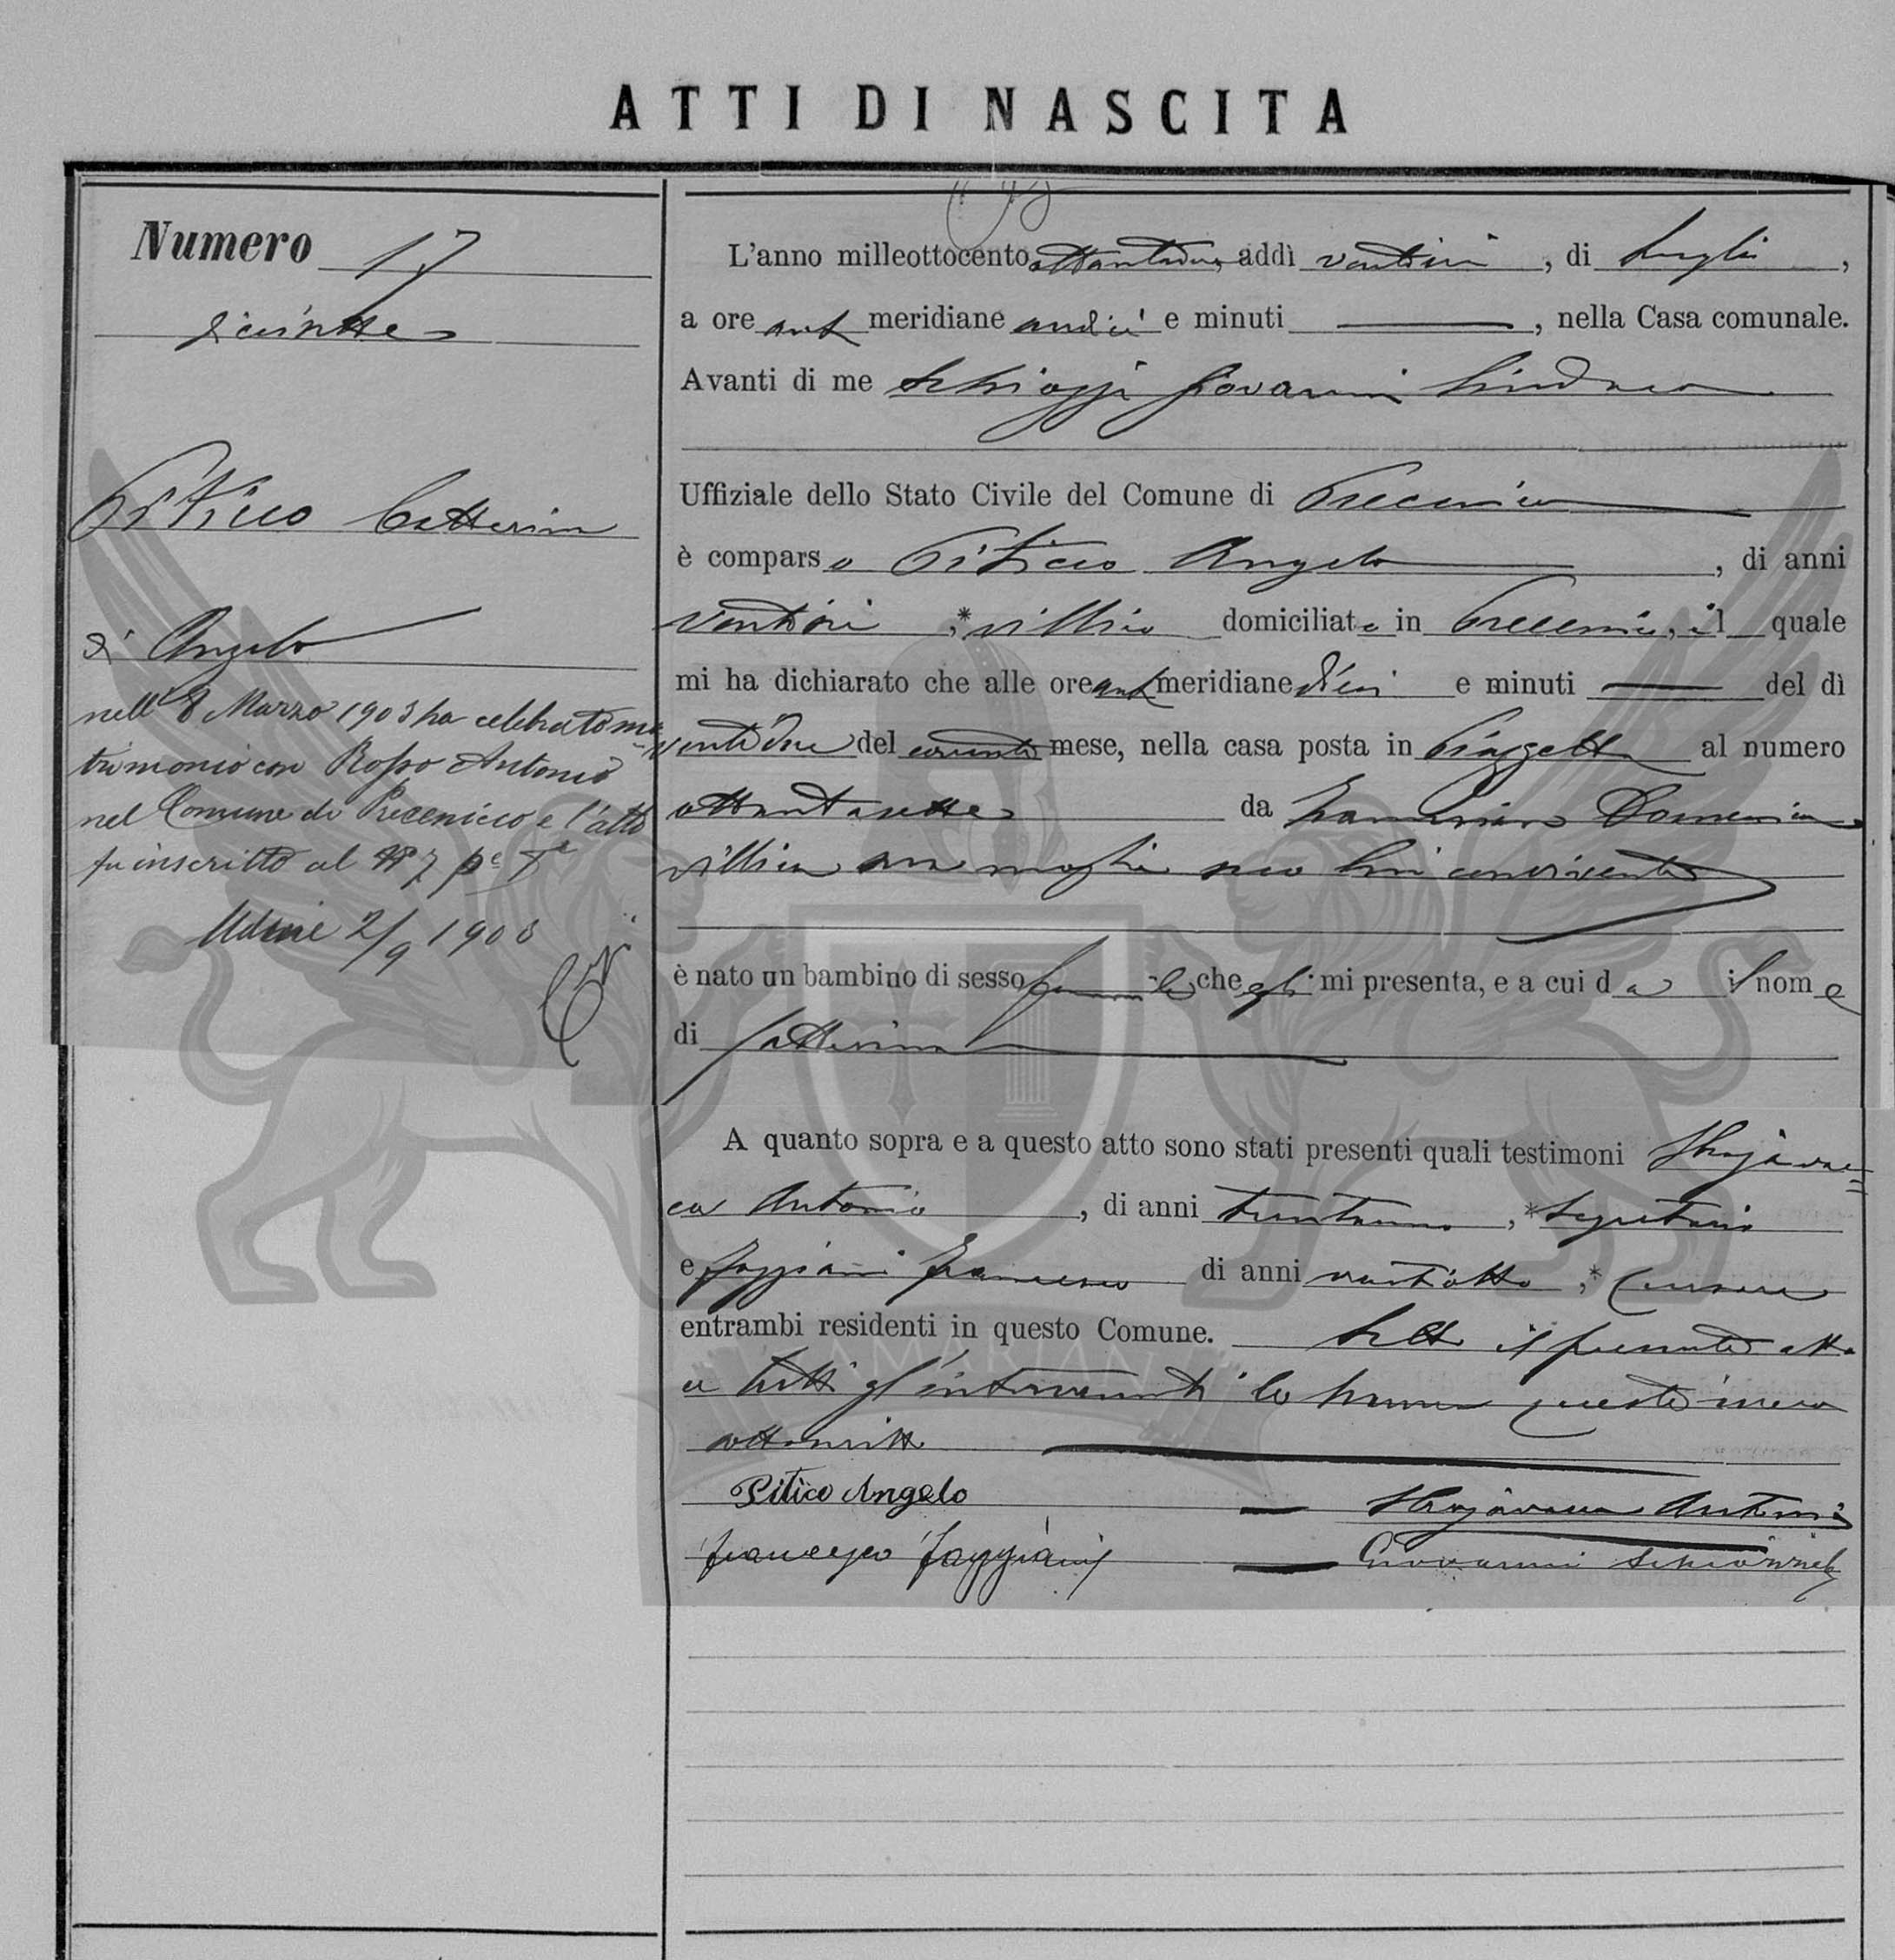 ATTI DI NASCITA
Numero 17
diciasette
Piticco Catterina
di Angelo
nell' 8 Marzo 1903 ha celebrato ma-
trimonio con Rosso Antonio
nel Comune di Precenicco e l'atto
fu inscritto al N° 7 pe I
Udine 2/9 1903
L'anno milleottocentoottantadue, addì ventitrè, di Luglio,
a ore ant meridiane undici e minuti ———, nella Casa comunale.
Avanti di me Schiozzi Giovanni Sindaco
Uffiziale dello Stato Civile del Comune di Precenicco
è comparso Piticco Angelo, di anni
, * villico domiciliato in Precenicco, il quale
mi ha dichiarato che alle ore ant meridiane dieci e minuti ——— del dì
ventidue del corrente mese, nella casa posta in Piazzetta al numero
ottantasette da Domenica
villica sua moglie seco lui convivente
è nato un bambino di sesso femminile che egli mi presenta, e a cui dà il nome
di Catterina
A quanto sopra e a questo atto sono stati presenti quali testimoni
Antonio, di anni trentuno, * Segretario
e Faggiani Francesco di anni ventiotto, * Cursore
entrambi residenti in questo Comune. Letto il presente atto
a tutti gl'intervenuti lo hanno questi meco
sottoscritto
Pitico Angelo — Antonio
Francesco Faggiani — Giovanni